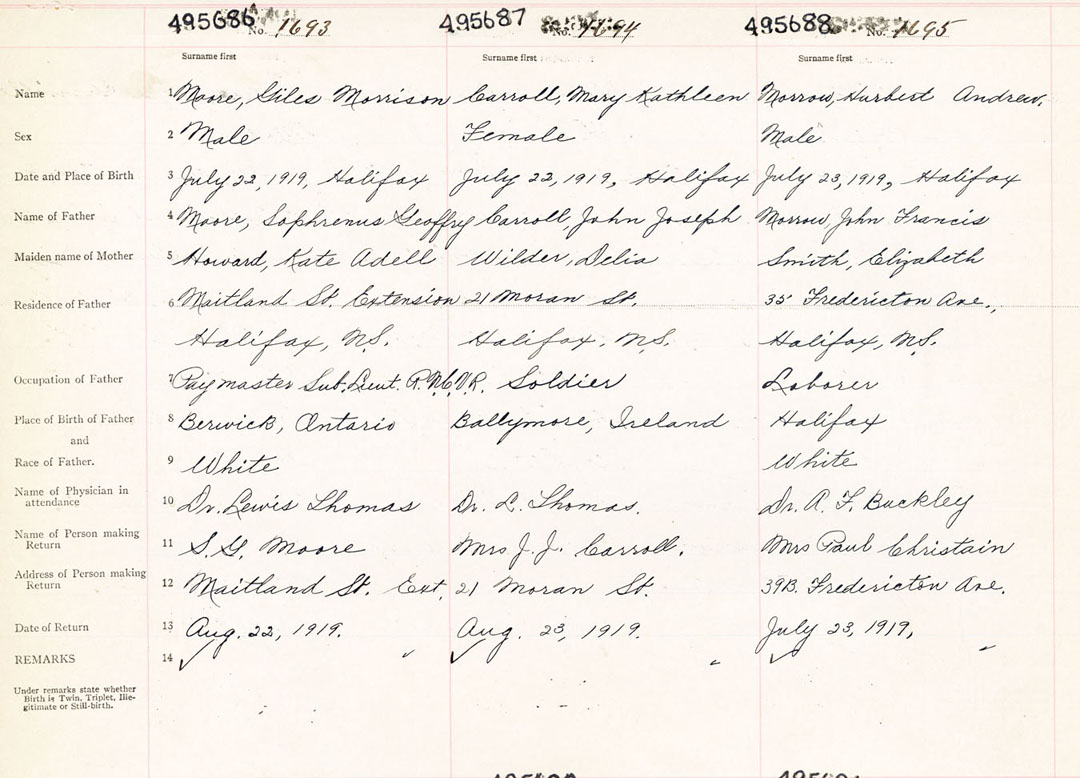 495686 No. 1693 495687 No. 1694 495688 No. 1695
Surname first Surname first Surname first
Name 1 Moore, Giles Morrison Carroll, Mary Kathleen Morrow, Hurbert Andrew.
Sex 2 Male Female Male
Date and Place of Birth 3 July 22, 1919, Halifax July 22, 1919, Halifax July 23, 1919, Halifax
Name of Father 4 Moore, Sophrenus Geoffry Carroll, John Joseph Morrow, John Francis
Maiden name of Mother 5 Howard, Kate Adell Wilder, Delia Smith, Elizabeth
Residence of Father 6 Maitland St. Extension 21 Moran St. 35 Fredericton Ave.,
Halifax, N.S. Halifax, N.S. Halifax, N.S.
Occupation of Father 7 Paymaster Sub. Lieut. R.N.C.V.R. Soldier Laborer
Place of Birth of Father 8 Berwick, Ontario Ballymore, Ireland Halifax
and
Race of Father. 9 White White
Name of Physician in
attendance 10 Dr. Lewis Thomas Dr. L. Thomas. Dr. A. F. Buckley
Name of Person making
Return 11 S. G. Moore Mrs J. J. Carroll. Mrs Paul Christain
Address of Person making
Return 12 Maitland St. Ext. 21 Moran St. 39B. Fredericton Ave.
Date of Return 13 Aug. 22, 1919. Aug. 23, 1919. July 23, 1919,
REMARKS 14
Under remarks state whether
Birth is Twin, Triplet, Ille-
gitimate or Still-birth.